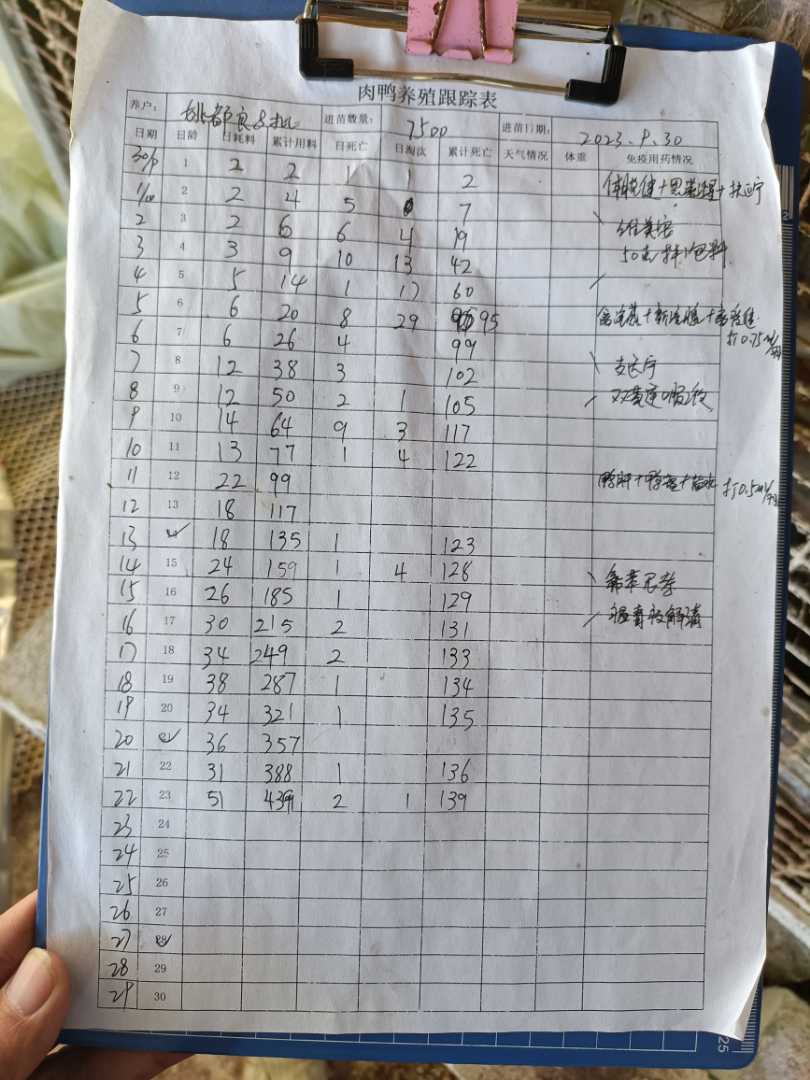 肉鸭养殖跟踪表
养户: 姚都良 进苗数量: 7500 进苗日期: 2023.9.30
日期 日龄 日耗料 累计用料 日死亡 日淘汰 累计死亡 天气情况 体重 免疫用药情况
30/9 1 2 2 1 1 2
1/10 2 2 4 5 7
2 3 2 6 6 4 19
3 4 3 9 10 13 42 50克拌1包料
4 5 5 14 1 17 60
5 6 6 20 8 29 95
6 7 6 26 4 99 打0.75ml/羽
7 8 12 38 3 102
8 9 12 50 2 1 105
9 10 14 64 9 3 117
10 11 13 77 1 4 122
11 12 22 99 打0.5ml/羽
12 13 18 117
13 14 18 135 1 123
14 15 24 159 1 4 128
15 16 26 185 1 129
16 17 30 215 2 131
17 18 34 249 2 133
18 19 38 287 1 134
19 20 34 321 1 135
20 21 36 357
21 22 31 388 1 136
22 23 51 439 2 1 139
23 24
24 25
25 26
26 27
27 28
28 29
29 30
25